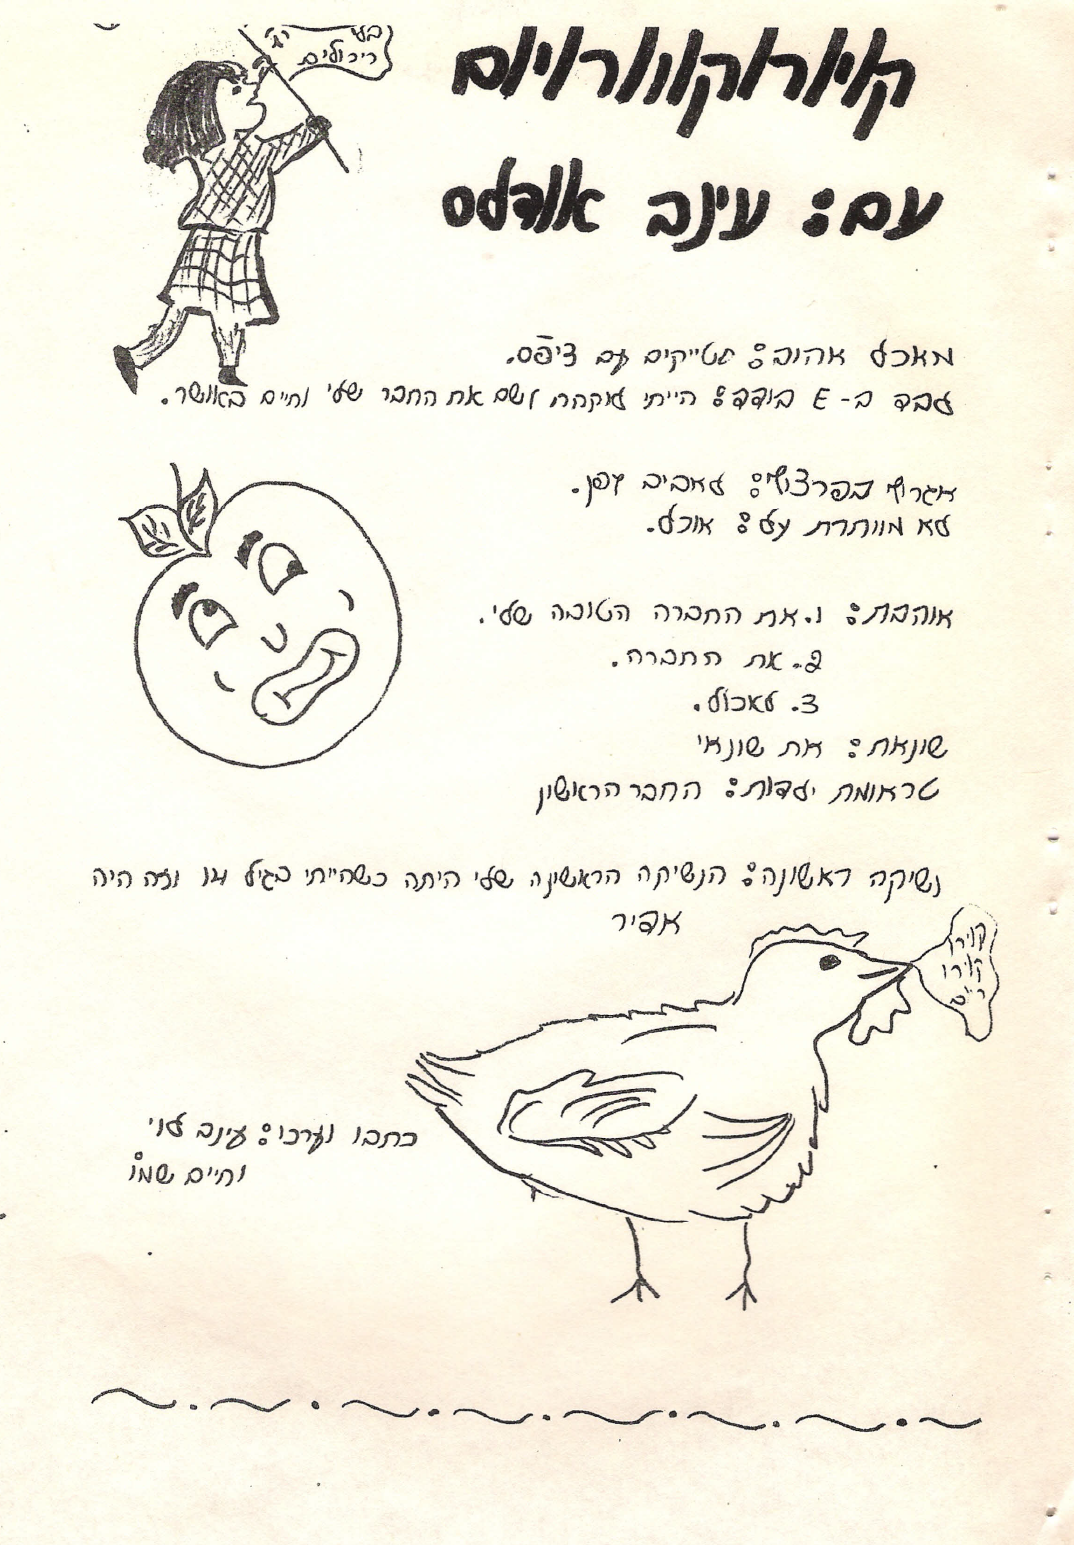 עם: עינב אודלס
מאכל אהוב: סטייקים עם ציפס.
לבד ב- E בודד: הייתי לוקחת לשם את החבר שלי וחיים באושר.
אגרוף בפרצוף: לאביב גפן.
לא מוותרת על: אוכל.
אוהבת: 1. את החברה הטובה שלי.
2. את החברה.
3. לאכול.
שונאת: את שונאי
טראומת ילדות: החבר הראשון
נשיקה ראשונה: הנשיקה הראשונה שלי היתה כשהייתי בגיל 14 וזה היה
אדיר
קוירו
קוירו
כתבו וערכו: עינב לוי
וחיים